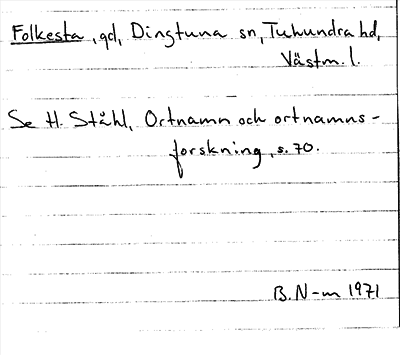 Folkesta, gd, Dingtuna sn, Tuhundra hd,
Västm. l.
Se H. Ståhl, Ortnamn och ortnamns-
forskning, s. 70.
B. N-m 1971